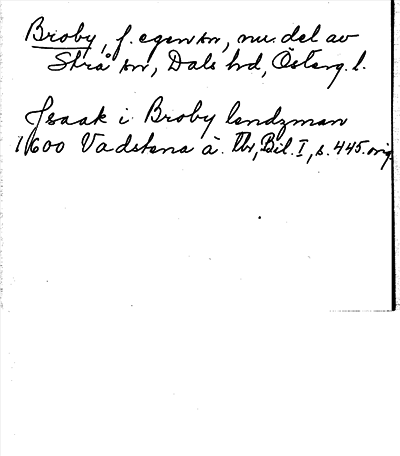 Broby, f. egen sn, nu. del av
Strå sn, Dals hd, Österg. l.
Jsaak i Broby lendzman
1600 Vadstena å. Tbr, Bil. I, s. 445. orig